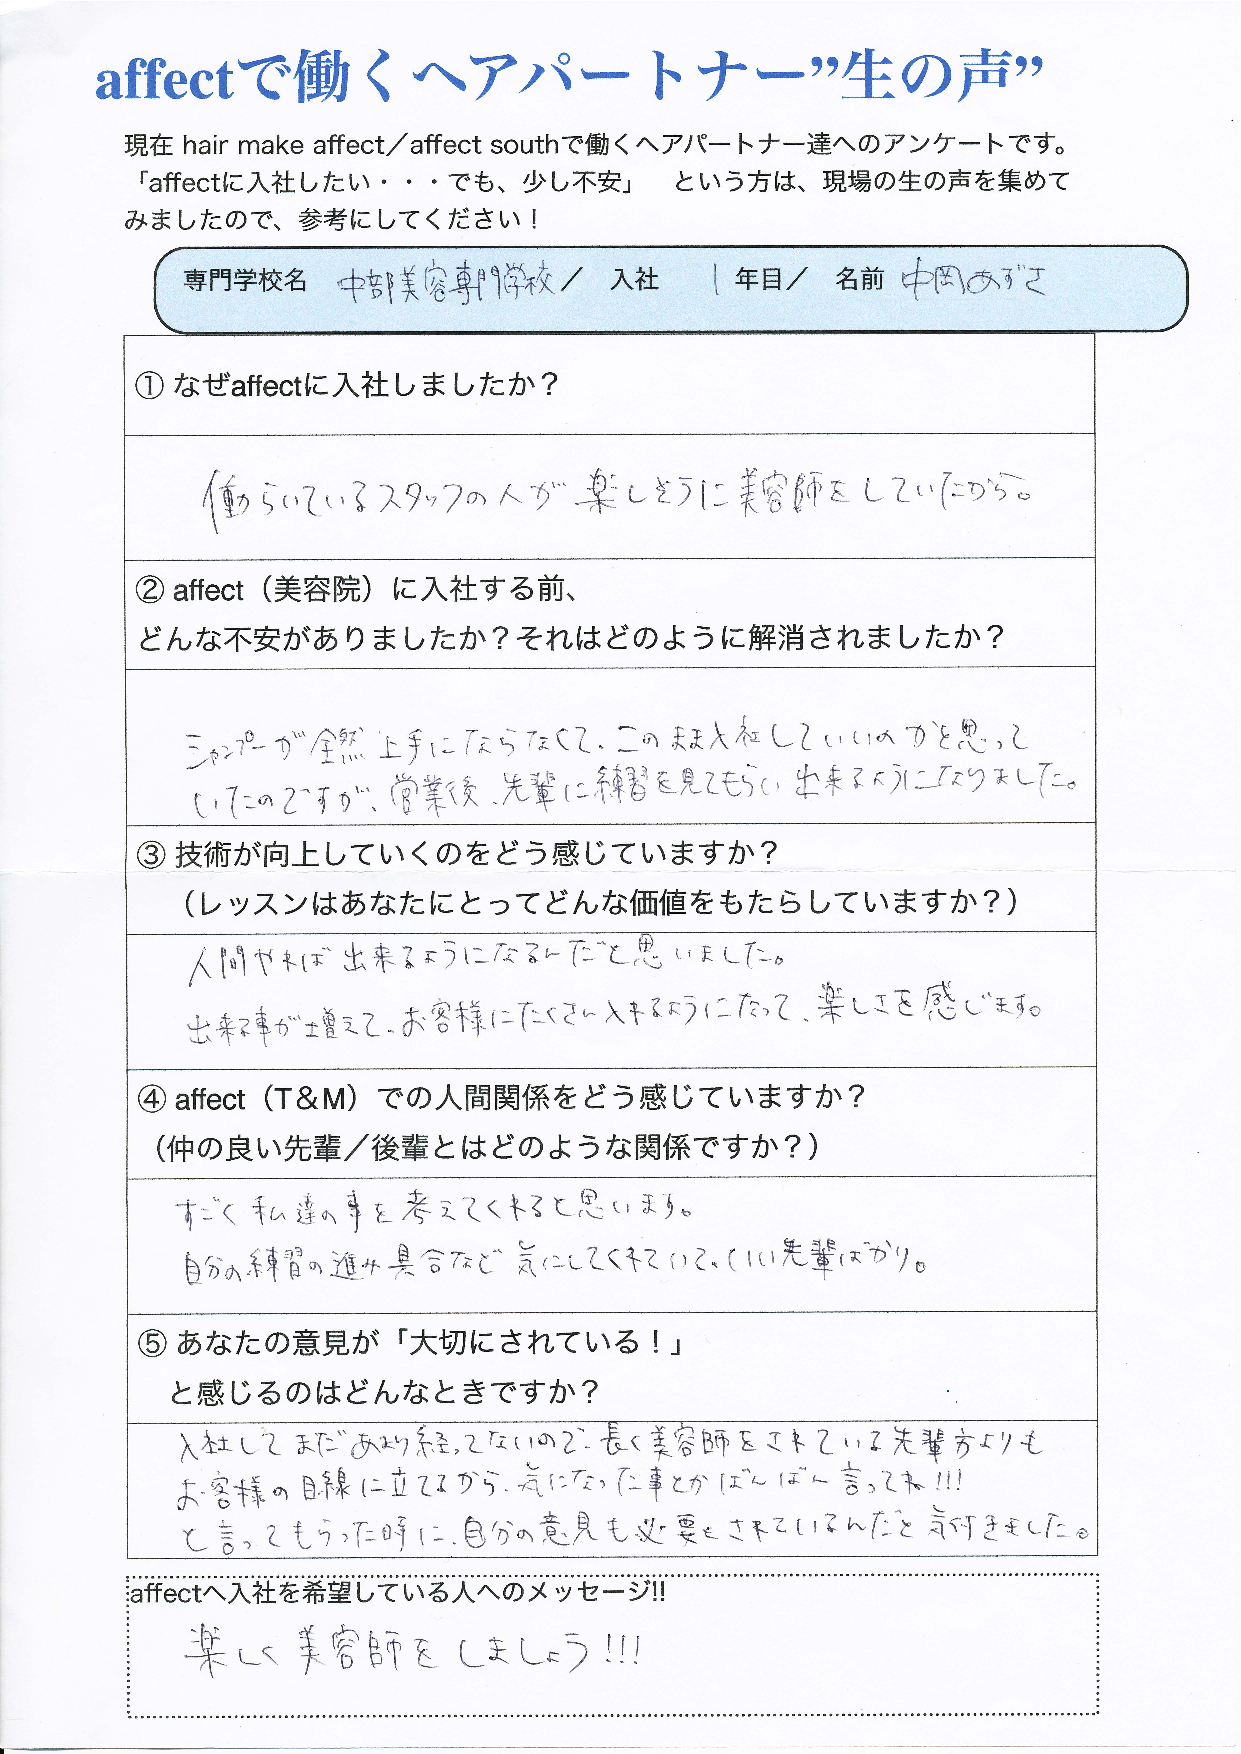 affectで働くヘアパートナー”生の声”
現在 hair make affect／affect southで働くヘアパートナー達へのアンケートです。
「affectに入社したい・・・でも、少し不安」　という方は、現場の生の声を集めて
みましたので、参考にしてください！
専門学校名　中部美容専門学校／　入社　1　年目／　名前　中岡あずさ
① なぜaffectに入社しましたか？
働らいているスタッフの人が楽しそうに美容師をしていたから。
② affect（美容院）に入社する前、
どんな不安がありましたか？それはどのように解消されましたか？
シャンプーが全然上手にならなくて、このまま入社していいのかと思って
いたのですが、営業後、先輩に練習を見てもらい出来るようになりました。
③ 技術が向上していくのをどう感じていますか？
（レッスンはあなたにとってどんな価値をもたらしていますか？）
人間やれば出来るようになるんだと思いました。
出来る事が増えて、お客様にたくさん入れるようになって、楽しさを感じます。
④ affect（T＆M）での人間関係をどう感じていますか？
（仲の良い先輩／後輩とはどのような関係ですか？）
すごく私達の事を考えてくれると思います。
自分の練習の進み具合など気にしてくれていて、いい先輩ばかり。
⑤ あなたの意見が「大切にされている！」
と感じるのはどんなときですか？
入社してまだあまり経ってないので、長く美容師をされている先輩方よりも
お客様の目線に立てるから、気になった事とかばんばん言ってね!!!
と言ってもらった時に、自分の意見も必要とされているんだと気付きました。
affectへ入社を希望している人へのメッセージ!!
楽しく美容師をしましょう!!!